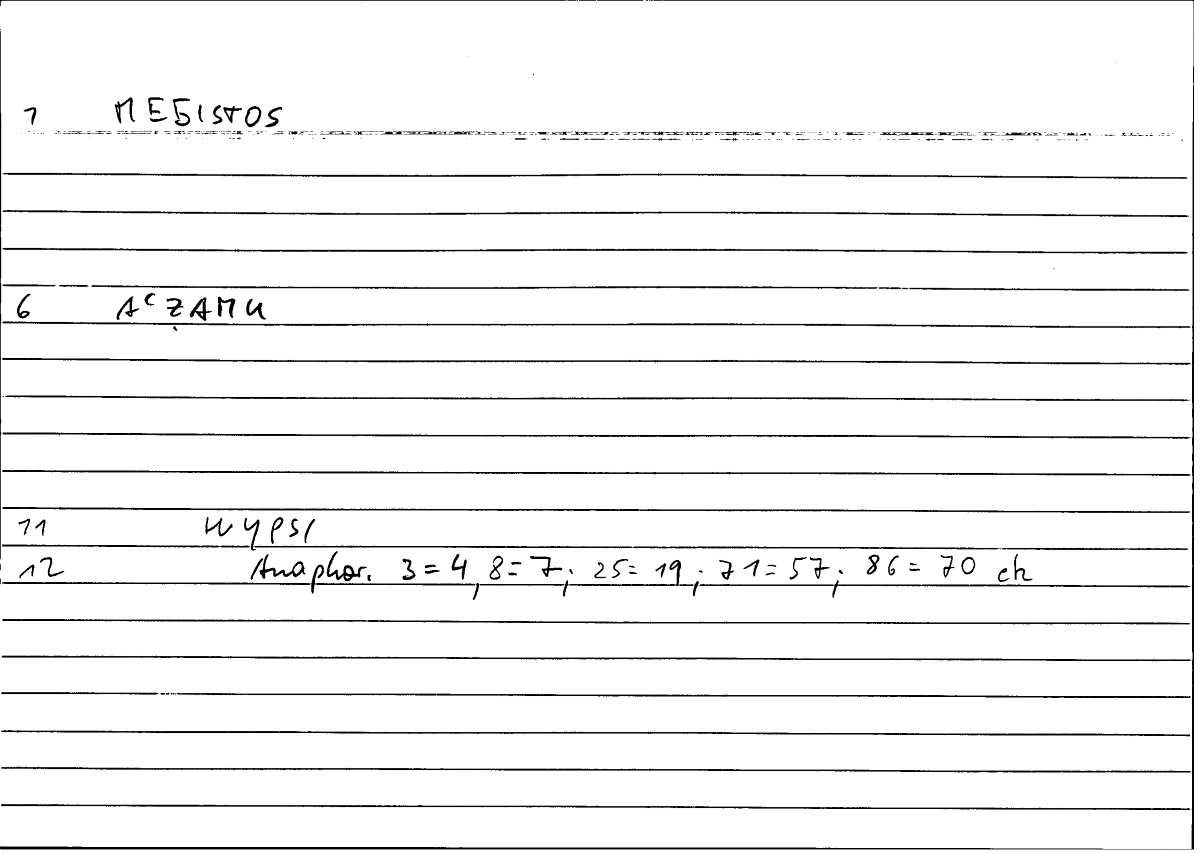 1 MEGISTOS
6 AᶜẒAMU
11 WYPSI
12 Anaphor. 3=4, 8=7; 25=19; 71=57; 86=70 ch